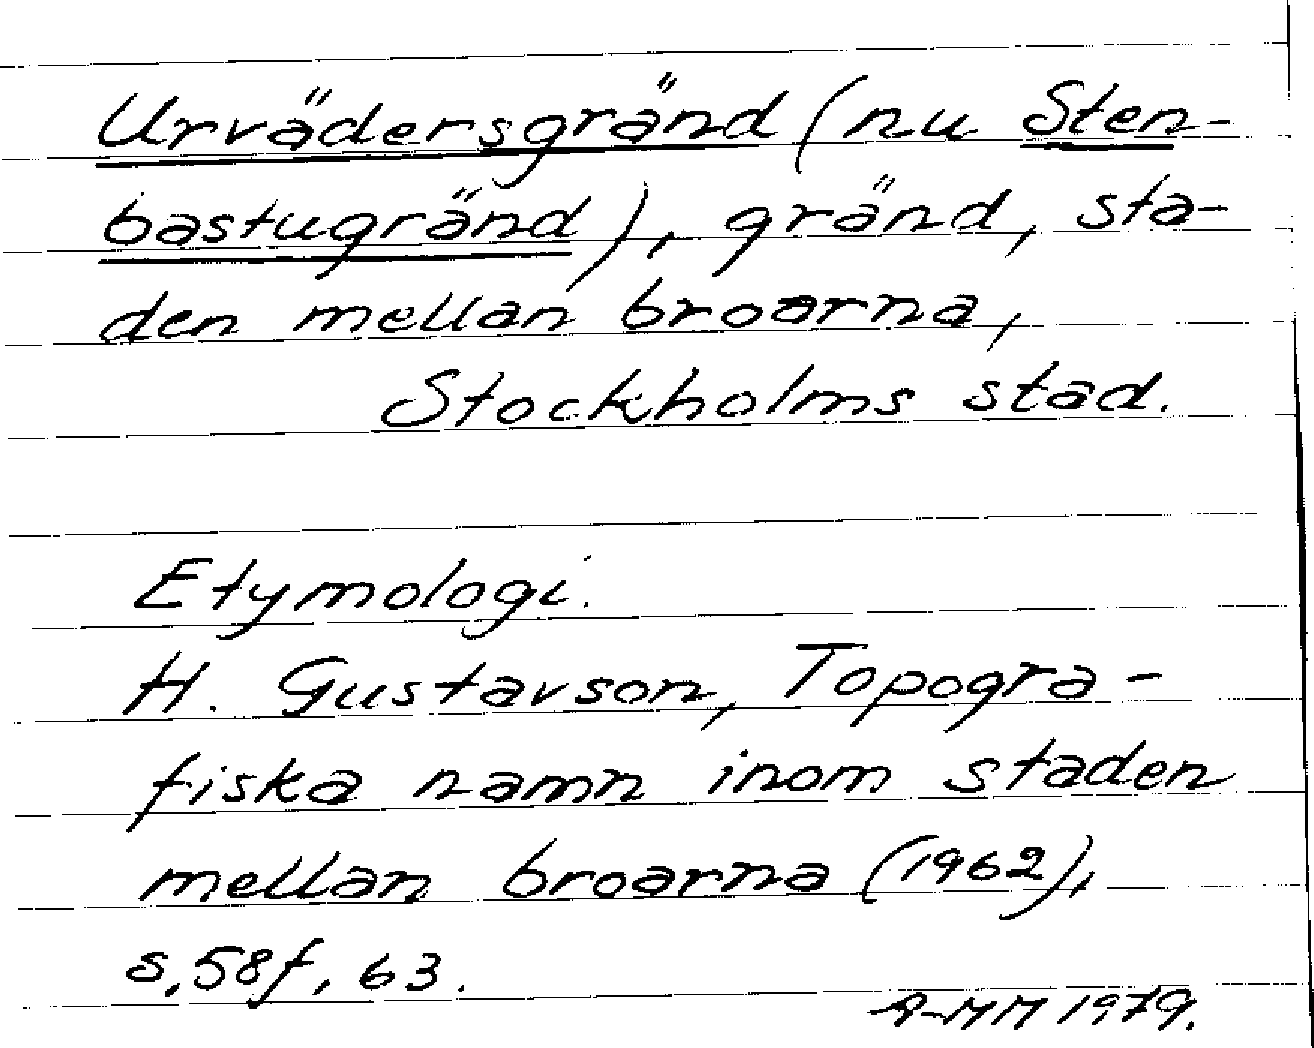 Urvädersgränd (nu Sten-
bastugränd), gränd, sta-
den mellan broarna,
Stockholms stad.
Etymologi.
H. Gustavson, Topogra-
fiska namn inom staden
mellan broarna (1962),
s. 58f, 63.
A-MM 1979.